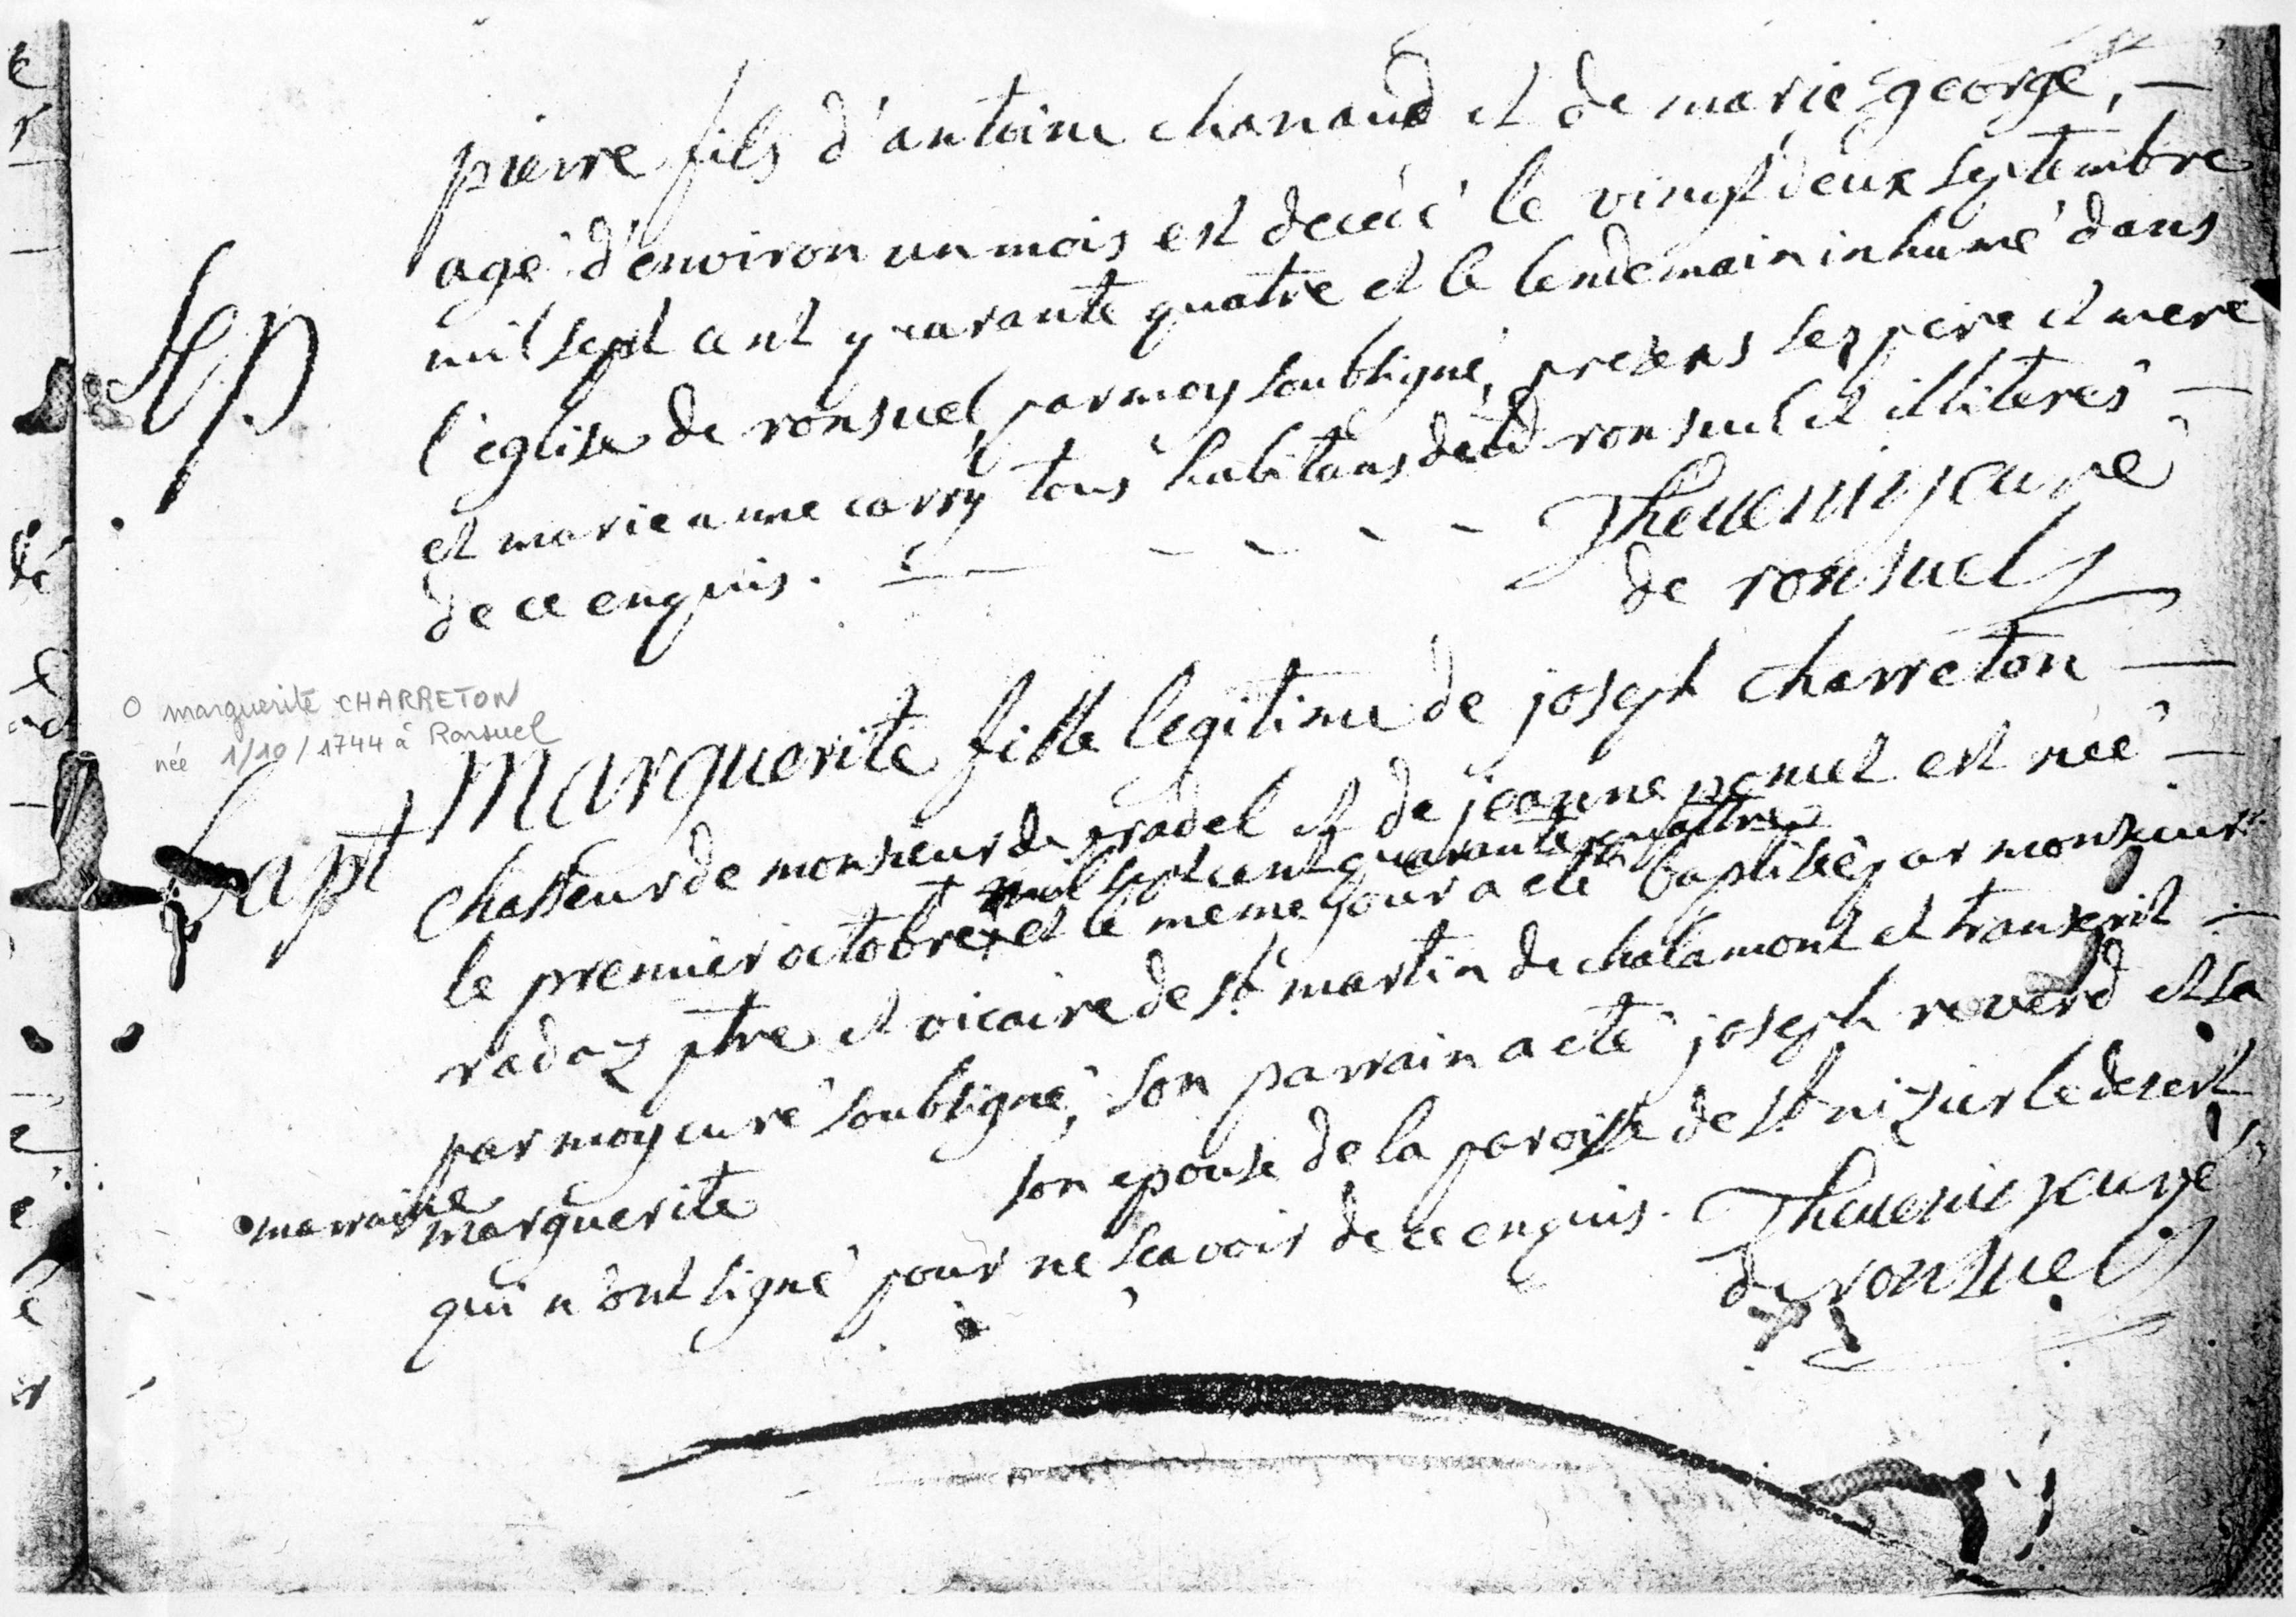 pierre fils d'antoine chanaud et de marie george,
agé d'environ un mois est decedé le vingt deux septembre
mil sept cent quarante quatre et le lendemain inhumé dans
Sep
l'eglise de ronsuel, par moy soubsigné, presens ses pere et mere
et marieanne carry tous habitans dud ronsuel et illiterés
de ce enquis. Thevenin curé
de ronsuel
O marguerite CHARRETON
née 1/10/1744 à Ronsuel
Marguerite fille legitime de joseph charreton
Bapt
chasseur de monsieur de pradel et de jeanne ponuet est née
mil sept cent quarante quattre
le premier octobre et le meme jour a eté baptisée par monsieur
radaz ptre et vicaire de st martin de chalamont et transcrit
par moy curé soubsigné, son parrain a eté joseph reverd et sa
marraine marguerite son epouse de la paroisse de st nizier le desert
qui n'ont signé pour ne scavoir de ce enquis. Thevenin curé
de ronsuel